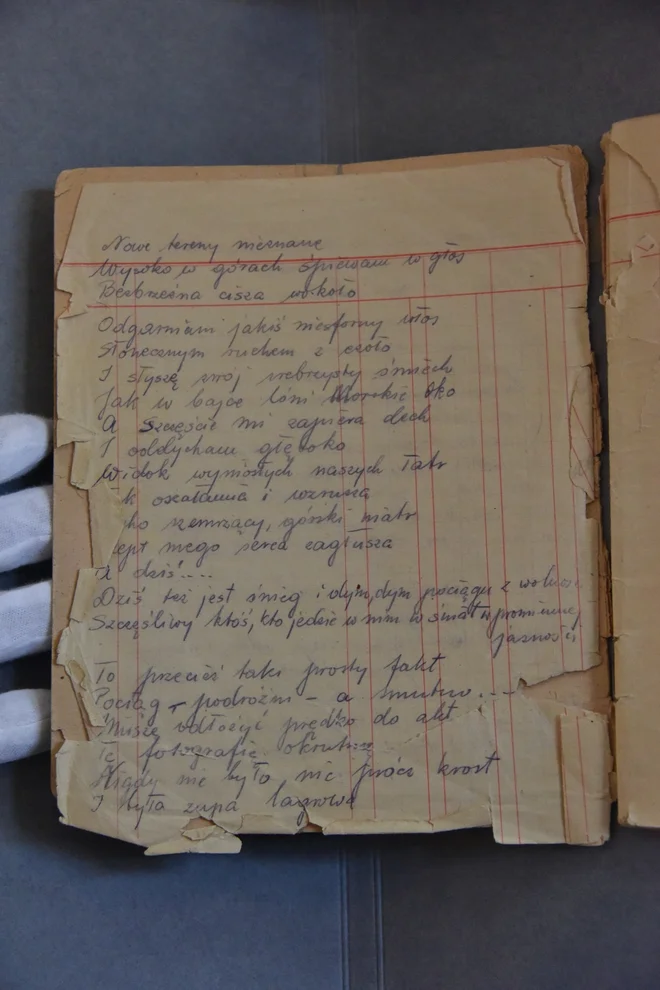 Nowe tereny nieznane
Wysoko w górach śpiewam w głos
Bezbrzeżna cisza wokoło
Odgarniam jakiś niesforny włos
Słonecznym ruchem z czoła
I słyszę swój srebrzysty śmiech
Jak w bajce lśni Morskie Oko
A Szczęście mi zapiera dech
I oddycham głęboko
Widok wyniosłych naszych Tatr
k oszałamia i wzrusza
ho szemrzący, górski wiatr
ept mego serca zagłusza
A dziś....
Dziś też jest śnieg i dym, dym pociągu z
Szczęśliwy ktoś, kto jedzie w nim w świat w promiennej
jasności
To przecież taki prosty fakt
Pociąg - podróżni - a smutno...
Muszę odłożyć prędko do akt
Tę fotografię okrutną
Nigdy nie było nic prócz krost
I była zupa lagrowa